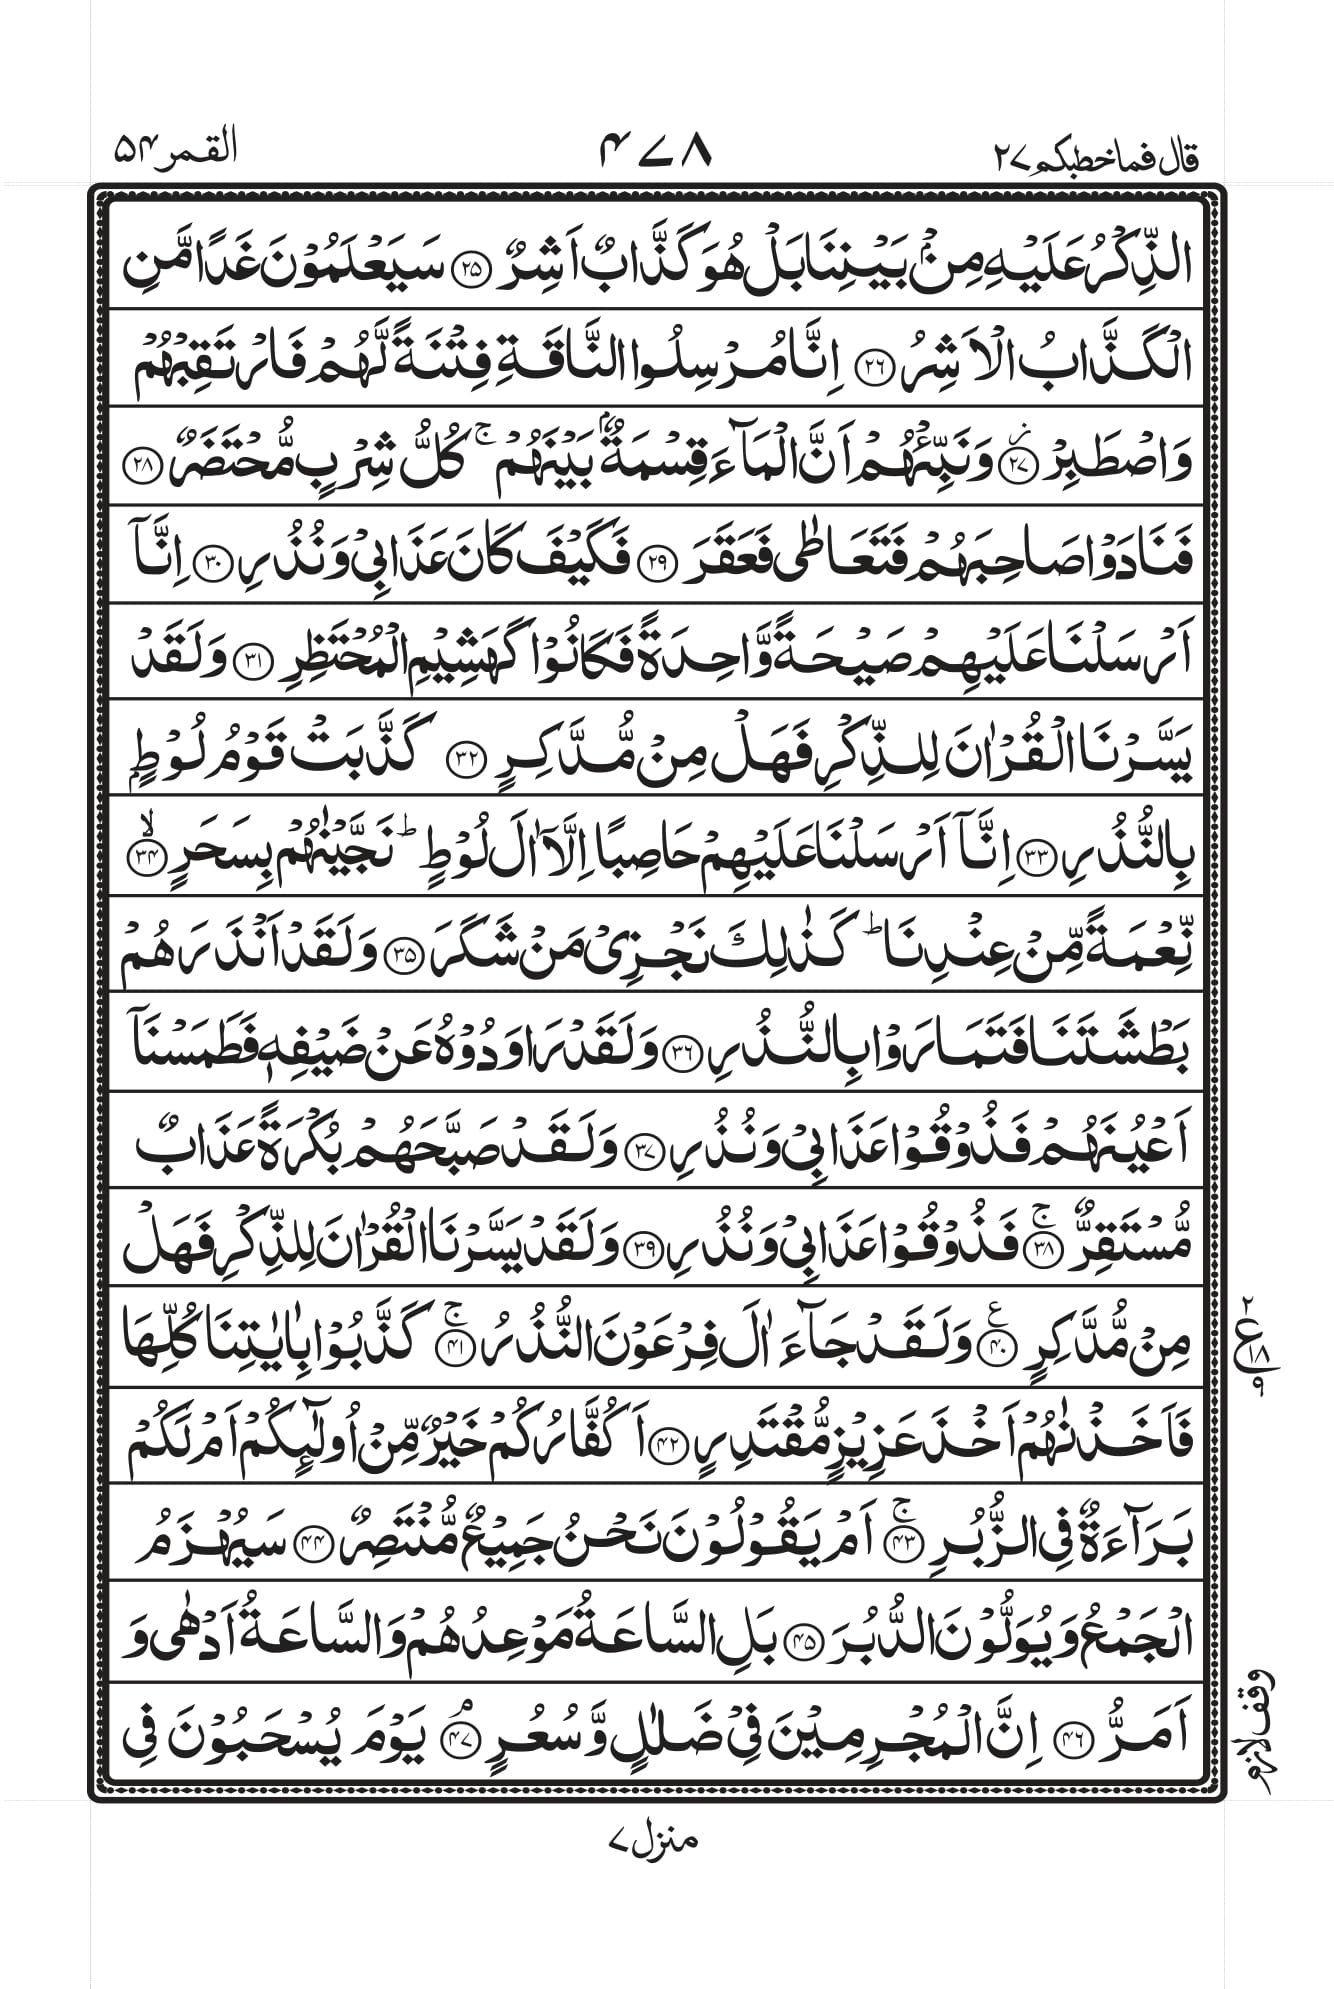 قال فما خطبکم ۲۷
۴۷۸
القمر ۵۴
الذِّكْرُ عَلَيْهِ مِنْۢ بَيْنِنَا بَلْ هُوَ كَذَّابٌ اَشِرٌ ۝۲۵ سَيَعْلَمُوْنَ غَدًا مَّنِ
الْكَذَّابُ الْاَشِرُ ۝۲۶ اِنَّا مُرْسِلُوا النَّاقَةِ فِتْنَةً لَّهُمْ فَارْتَقِبْهُمْ
وَاصْطَبِرْ ۝۲۷ؗ وَنَبِّئْهُمْ اَنَّ الْمَآءَ قِسْمَةٌۢ بَيْنَهُمْ ۚ كُلُّ شِرْبٍ مُّحْتَضَرٌ ۝۲۸
فَنَادَوْا صَاحِبَهُمْ فَتَعَاطٰى فَعَقَرَ ۝۲۹ فَكَيْفَ كَانَ عَذَابِيْ وَنُذُرِ ۝۳۰ اِنَّآ
اَرْسَلْنَا عَلَيْهِمْ صَيْحَةً وَّاحِدَةً فَكَانُوْا كَهَشِيْمِ الْمُحْتَظِرِ ۝۳۱ وَلَقَدْ
يَسَّرْنَا الْقُرْاٰنَ لِلذِّكْرِ فَهَلْ مِنْ مُّدَّكِرٍ ۝۳۲ كَذَّبَتْ قَوْمُ لُوْطٍۭ
بِالنُّذُرِ ۝۳۳ اِنَّآ اَرْسَلْنَا عَلَيْهِمْ حَاصِبًا اِلَّآ اٰلَ لُوْطٍ ؕ نَجَّيْنٰهُمْ بِسَحَرٍ ۝۳۴ۙ
نِّعْمَةً مِّنْ عِنْدِنَا ؕ كَذٰلِكَ نَجْزِيْ مَنْ شَكَرَ ۝۳۵ وَلَقَدْ اَنْذَرَهُمْ
بَطْشَتَنَا فَتَمَارَوْا بِالنُّذُرِ ۝۳۶ وَلَقَدْ رَاوَدُوْهُ عَنْ ضَيْفِهٖ فَطَمَسْنَآ
اَعْيُنَهُمْ فَذُوْقُوْا عَذَابِيْ وَنُذُرِ ۝۳۷ وَلَقَدْ صَبَّحَهُمْ بُكْرَةً عَذَابٌ
مُّسْتَقِرٌّ ۝۳۸ۚ فَذُوْقُوْا عَذَابِيْ وَنُذُرِ ۝۳۹ وَلَقَدْ يَسَّرْنَا الْقُرْاٰنَ لِلذِّكْرِ فَهَلْ
مِنْ مُّدَّكِرٍ ۝۴۰ع وَلَقَدْ جَآءَ اٰلَ فِرْعَوْنَ النُّذُرُ ۝۴۱ۚ كَذَّبُوْا بِاٰيٰتِنَا كُلِّهَا
۲ ع ۱۸ ۹
فَاَخَذْنٰهُمْ اَخْذَ عَزِيْزٍ مُّقْتَدِرٍ ۝۴۲ اَكُفَّارُكُمْ خَيْرٌ مِّنْ اُولٰٓئِكُمْ اَمْ لَكُمْ
بَرَآءَةٌ فِي الزُّبُرِ ۝۴۳ۚ اَمْ يَقُوْلُوْنَ نَحْنُ جَمِيْعٌ مُّنْتَصِرٌ ۝۴۴ سَيُهْزَمُ
الْجَمْعُ وَيُوَلُّوْنَ الدُّبُرَ ۝۴۵ بَلِ السَّاعَةُ مَوْعِدُهُمْ وَالسَّاعَةُ اَدْهٰى وَ
اَمَرُّ ۝۴۶ اِنَّ الْمُجْرِمِيْنَ فِيْ ضَلٰلٍ وَّسُعُرٍ ۝۴۷ۘ يَوْمَ يُسْحَبُوْنَ فِي
وقف لازم
منزل ۷